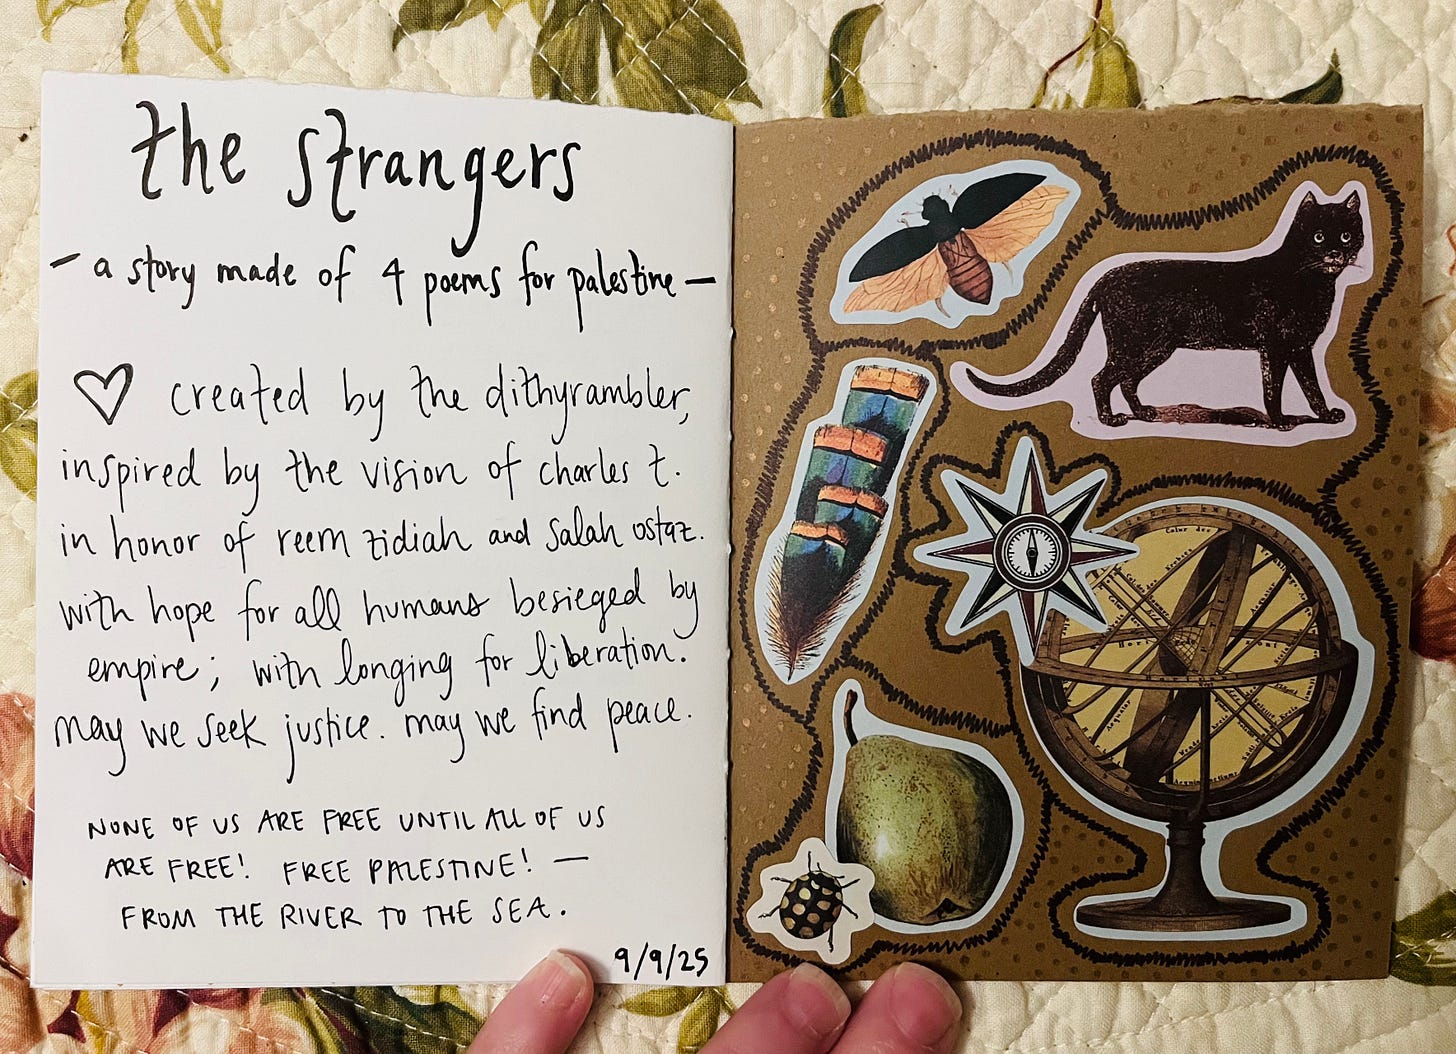 the strangers
– a story made of 4 poems for palestine –
♡ created by the dithyrambler,
inspired by the vision of charles t.
in honor of reem zidiah and salah ostaz.
with hope for all humans besieged by
empire; with longing for liberation.
may we seek justice. may we find peace.
NONE OF US ARE FREE UNTIL ALL OF US
ARE FREE! FREE PALESTINE! —
FROM THE RIVER TO THE SEA.
9/9/25